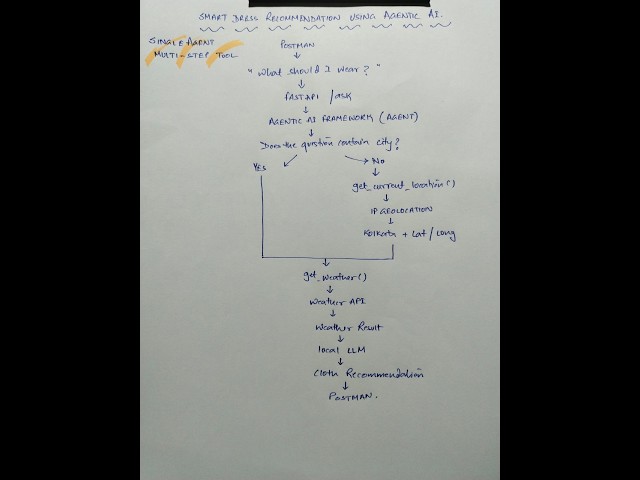 SMART DRESS RECOMMENDATION USING AGENTIC AI.
SINGLE AGENT
MULTI-STEP TOOL
POSTMAN
"What should I wear?"
FASTAPI /ask
AGENTIC AI FRAMEWORK (AGENT)
Does the question contain city?
YES
No
get_current_location()
IP GEOLOCATION
Kolkata + Lat/Long
get_weather()
Weather API
Weather Result
local LLM
Cloth Recommendation
POSTMAN.